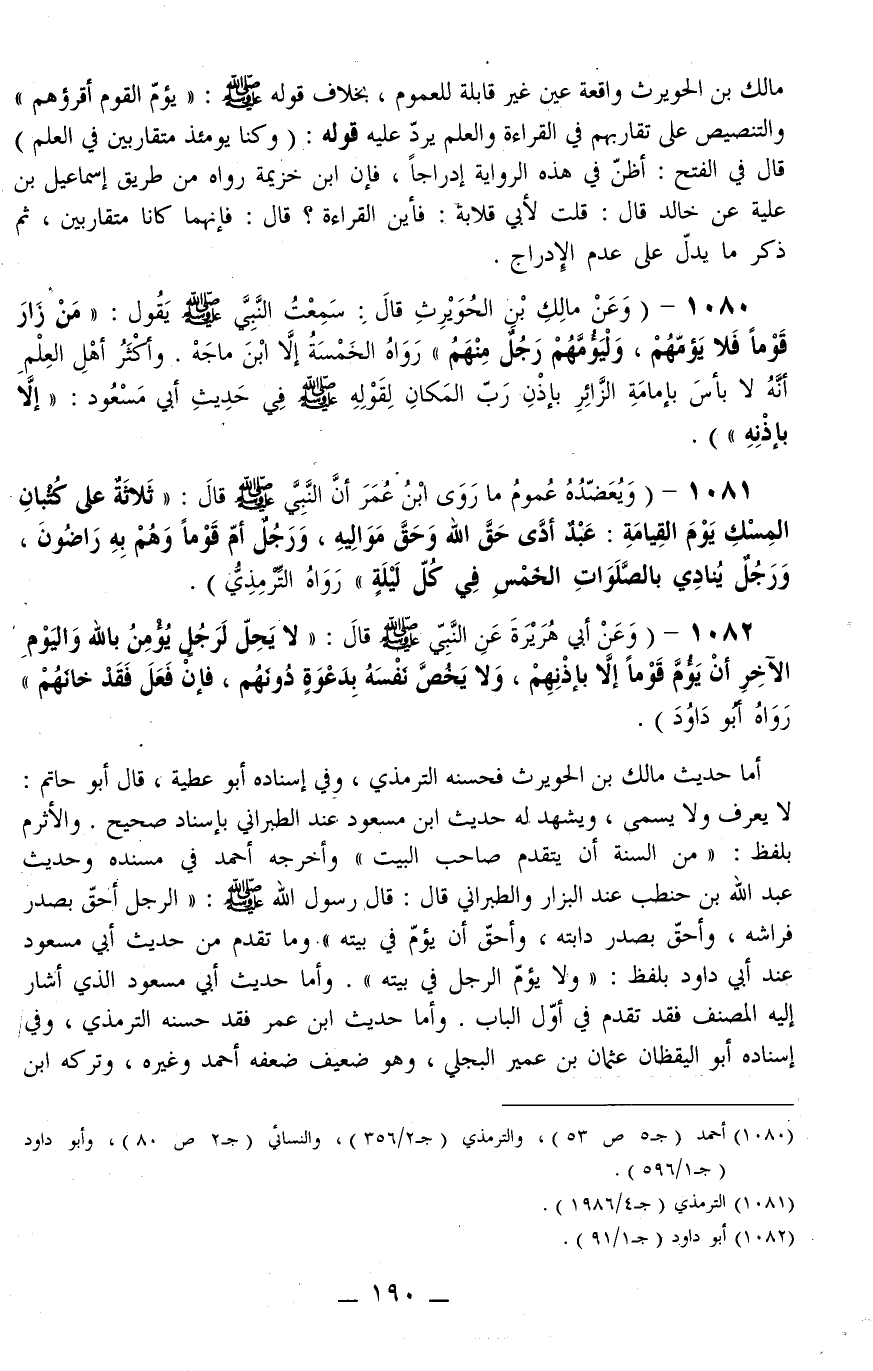 مالك بن الحويرث واقعة عين غير قابلة للعموم ، بخلاف قوله ﷺ : « يؤمّ القوم أقرؤهم »
والتنصيص على تقاربهم في القراءة والعلم يردّ عليه قوله : ( وكنا يومئذ متقاربين في العلم )
قال في الفتح : أظنّ في هذه الرواية إدراجاً ، فإن ابن خزيمة رواه من طريق إسماعيل بن
علية عن خالد قال : قلت لأبي قلابة : فأين القراءة ؟ قال : فإنهما كانا متقاربين ، ثم
ذكر ما يدلّ على عدم الإدراج .
١٠٨٠ - ( وَعَنْ مالِكِ بْنِ الحُوَيْرِثِ قالَ : سَمِعْتُ النَّبِيَّ ﷺ يَقُول : « مَنْ زَارَ
قَوْماً فَلا يَؤمّهُمْ ، وَلْيَؤُمَّهُمْ رَجُلٌ مِنْهَمُ » رَوَاهُ الخَمْسَةُ إلَّا ابْنَ ماجَهْ . وأكْثَرُ أهْلِ العِلْمِ
أنَّهُ لا بأسَ بإمامَةِ الزَّائِرِ بإذْنِ رَبّ المَكانِ لِقَوْلِهِ ﷺ فِي حَدِيثِ أبي مَسْعُود : « إلَّا
بإذْنِهِ » ) .
١٠٨١ - ( وَيُعَضّدُهُ عُمومُ ما رَوَى ابْنُ عُمَرَ أنَّ النَّبِيَّ ﷺ قالَ : « ثَلاثَةٌ على كُثْبانِ
المِسْكِ يَوْمَ القِيامَةِ : عَبْدٌ أدَّى حَقَّ الله وَحَقَّ مَوَالِيهِ ، وَرَجُلٌ أمّ قَوْماً وَهُمْ بِهِ رَاضُونَ ،
وَرَجُلٌ يُنادِي بالصَّلَوَاتِ الخَمْسِ فِي كُلّ لَيْلَةٍ » رَوَاهُ التِّرْمِذِيُّ ) .
١٠٨٢ - ( وَعَنْ أبي هُرَيْرَةَ عَنِ النَّبِيّ ﷺ قالَ : « لا يَحِلّ لَرَجُلٍ يُؤْمِنُ بالله وَاليَوْمِ
الآخِرِ أنْ يَؤُمَّ قَوْماً إلَّا بإذْنِهِمْ ، وَلا يَخُصَّ نَفْسَهُ بِدَعْوَةٍ دُونَهُم ، فإنْ فَعَلَ فَقَدْ خانَهُمْ »
رَوَاهُ أبُو دَاوُدَ ) .
أما حديث مالك بن الحويرث فحسنه الترمذي ، وفي إسناده أبو عطية ، قال أبو حاتم :
لا يعرف ولا يسمى ، ويشهد له حديث ابن مسعود عند الطبراني بإسناد صحيح . والأثرم
بلفظ : « من السنة أن يتقدم صاحب البيت » وأخرجه أحمد في مسنده وحديث
عبد الله بن حنطب عند البزار والطبراني قال : قال رسول الله ﷺ : « الرجل أحقّ بصدر
فراشه ، وأحقّ بصدر دابته ، وأحقّ أن يؤمّ في بيته » وما تقدم من حديث أبي مسعود
عند أبي داود بلفظ : « ولا يؤمّ الرجل في بيته » . وأما حديث أبي مسعود الذي أشار
إليه المصنف فقد تقدم في أوّل الباب . وأما حديث ابن عمر فقد حسنه الترمذي ، وفي
إسناده أبو اليقظان عثمان بن عمير البجلي ، وهو ضعيف ضعفه أحمد وغيره ، وتركه ابن
(١٠٨٠) أحمد ( جـ٥ ص ٥٣ ) ، والترمذي ( جـ٣٥٦/٢ ) ، والنسائي ( جـ٢ ص ٨٠ ) ، وأبو داود
( جـ٥٩٦/١ ) .
(١٠٨١) الترمذي ( جـ١٩٨٦/٤ ) .
(١٠٨٢) أبو داود ( جـ٩١/١ ) .
ــ ١٩٠ ــ